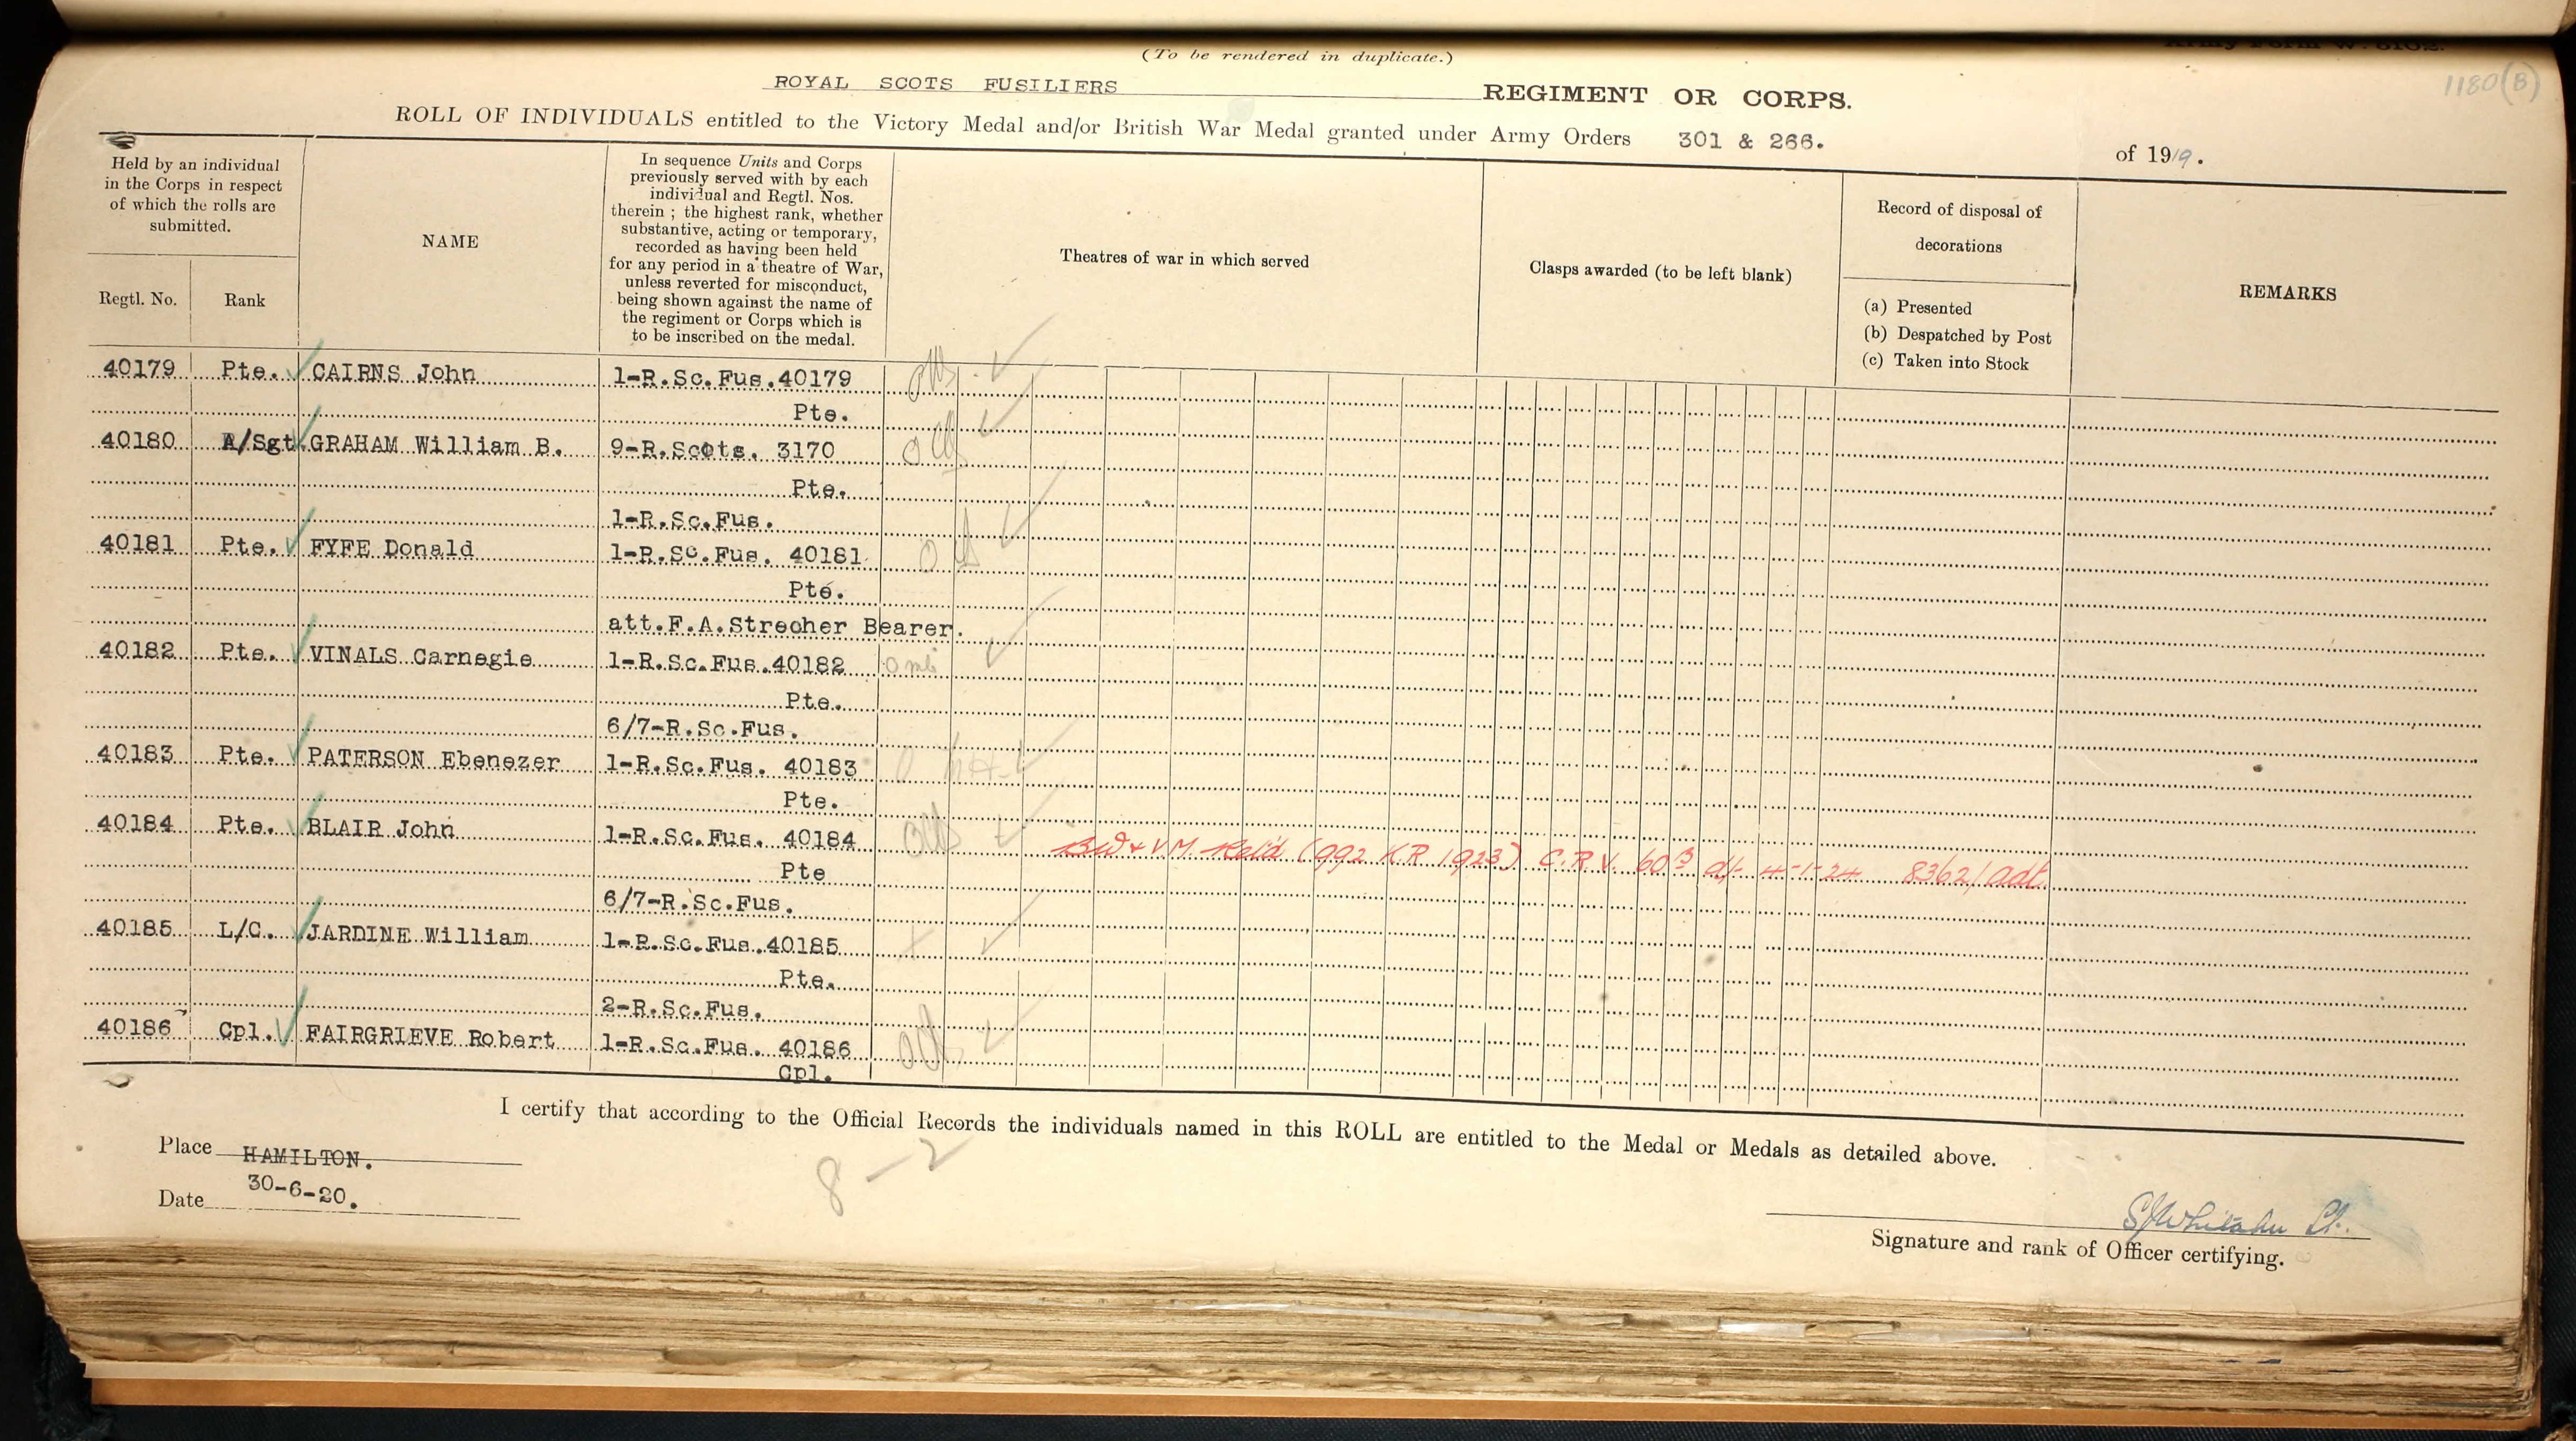 (To be rendered in duplicate.)
1180(B)
ROYAL SCOTS FUSILIERS REGIMENT OR CORPS.
ROLL OF INDIVIDUALS entitled to the Victory Medal and/or British War Medal granted under Army Orders 301 & 266. of 1919.
Held by an individual
in the Corps in respect
of which the rolls are
submitted.
Regtl. No.
Rank
NAME
In sequence Units and Corps
previously served with by each
individual and Regtl. Nos.
therein ; the highest rank, whether
substantive, acting or temporary,
recorded as having been held
for any period in a theatre of War,
unless reverted for misconduct,
being shown against the name of
the regiment or Corps which is
to be inscribed on the medal.
Theatres of war in which served
Clasps awarded (to be left blank)
Record of disposal of
decorations
(a) Presented
(b) Despatched by Post
(c) Taken into Stock
REMARKS
40179 Pte. CAIRNS John 1-R.Sc.Fus.40179
Pte.
40180 A/Sgt. GRAHAM William B. 9-R.Scots. 3170
Pte.
1-R.Sc.Fus.
40181 Pte. FYFE Donald 1-R.Sc.Fus. 40181
Pte.
att.F.A.Strecher Bearer.
40182 Pte. VINALS Carnegie 1-R.Sc.Fus.40182
Pte.
6/7-R.Sc.Fus.
40183 Pte. PATERSON Ebenezer 1-R.Sc.Fus. 40183
Pte.
40184 Pte. BLAIR John 1-R.Sc.Fus. 40184
BW & VM Ret'd (992 KR 1923) C.R.V. 60B d/- 4-1-24 8362/Adt.
Pte
6/7-R.Sc.Fus.
40185 L/C. JARDINE William 1-R.Sc.Fus.40185
Pte.
2-R.Sc.Fus.
40186 Cpl. FAIRGRIEVE Robert 1-R.Sc.Fus. 40186
Cpl.
I certify that according to the Official Records the individuals named in this ROLL are entitled to the Medal or Medals as detailed above.
Place HAMILTON.
Date 30-6-20.
8-2
Signature and rank of Officer certifying.